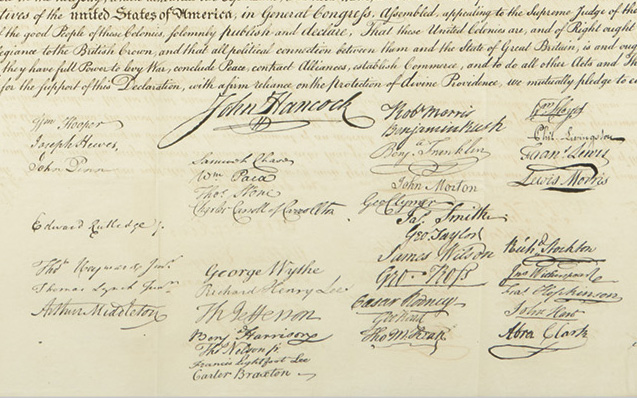 tives of the united States of America, in General Congress, Assembled, appealing to the Supreme Judge of the
the good People of these Colonies, solemnly publish and declare, That these United Colonies are, and of Right ought
egiance to the British Crown, and that all political connection between them and the State of Great Britain, is and oug
they have full Power to levy War, conclude Peace, contract Alliances, establish Commerce, and to do all other Acts and Th
for the support of this Declaration, with a firm reliance on the protection of divine Providence, we mutually pledge to
John Hancock
Wm Hooper
Joseph Hewes,
John Penn
Edward Rutledge /.
Thos Heyward Junr.
Thomas Lynch Junr.
Arthur Middleton
Samuel Chase
Wm Paca
Thos Stone
Charles Carroll of Carrollton
George Wythe
Richard Henry Lee
Th Jefferson
Benj Harrison
Thos Nelson jr.
Francis Lightfoot Lee
Carter Braxton
Robt Morris
Benjamin Rush
Benja Franklin
John Morton
Geo Clymer
Jas. Smith
Geo. Taylor
James Wilson
Geo. Ross
Caesar Rodney
Geo Read
Tho M:Kean
Wm Floyd
Phil. Livingston
Frans. Lewis
Lewis Morris
Richd Stockton
Jno Witherspoon
Fras. Hopkinson
John Hart
Abra Clark